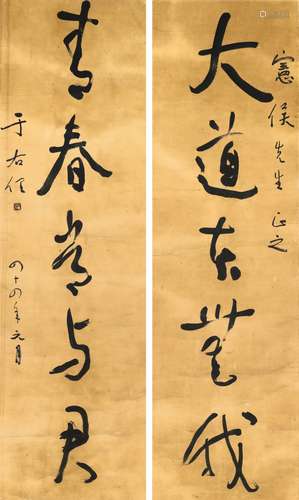 憲侯先生正之
大道本無我
青春長与君
于右任
四十四年元月